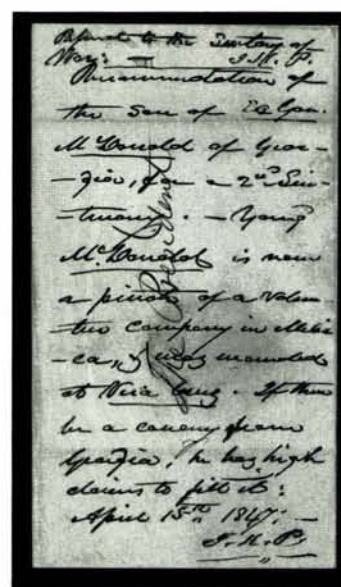 Referred to the Secretary of
War: — J.K.P.
Recommendation of
the Son of Ex Gov.
McDonald of Geor-
-gia, for a 2nd Lieu-
-tenancy. — Young
McDonald is now
a private of a volun-
-teer company in Mexi-
-co, & was wounded
at Vera Cruz. If there
be a vacancy from
Georgia, he has high
claims to fill it:
April 15th 1847: —
J.K.P.
President